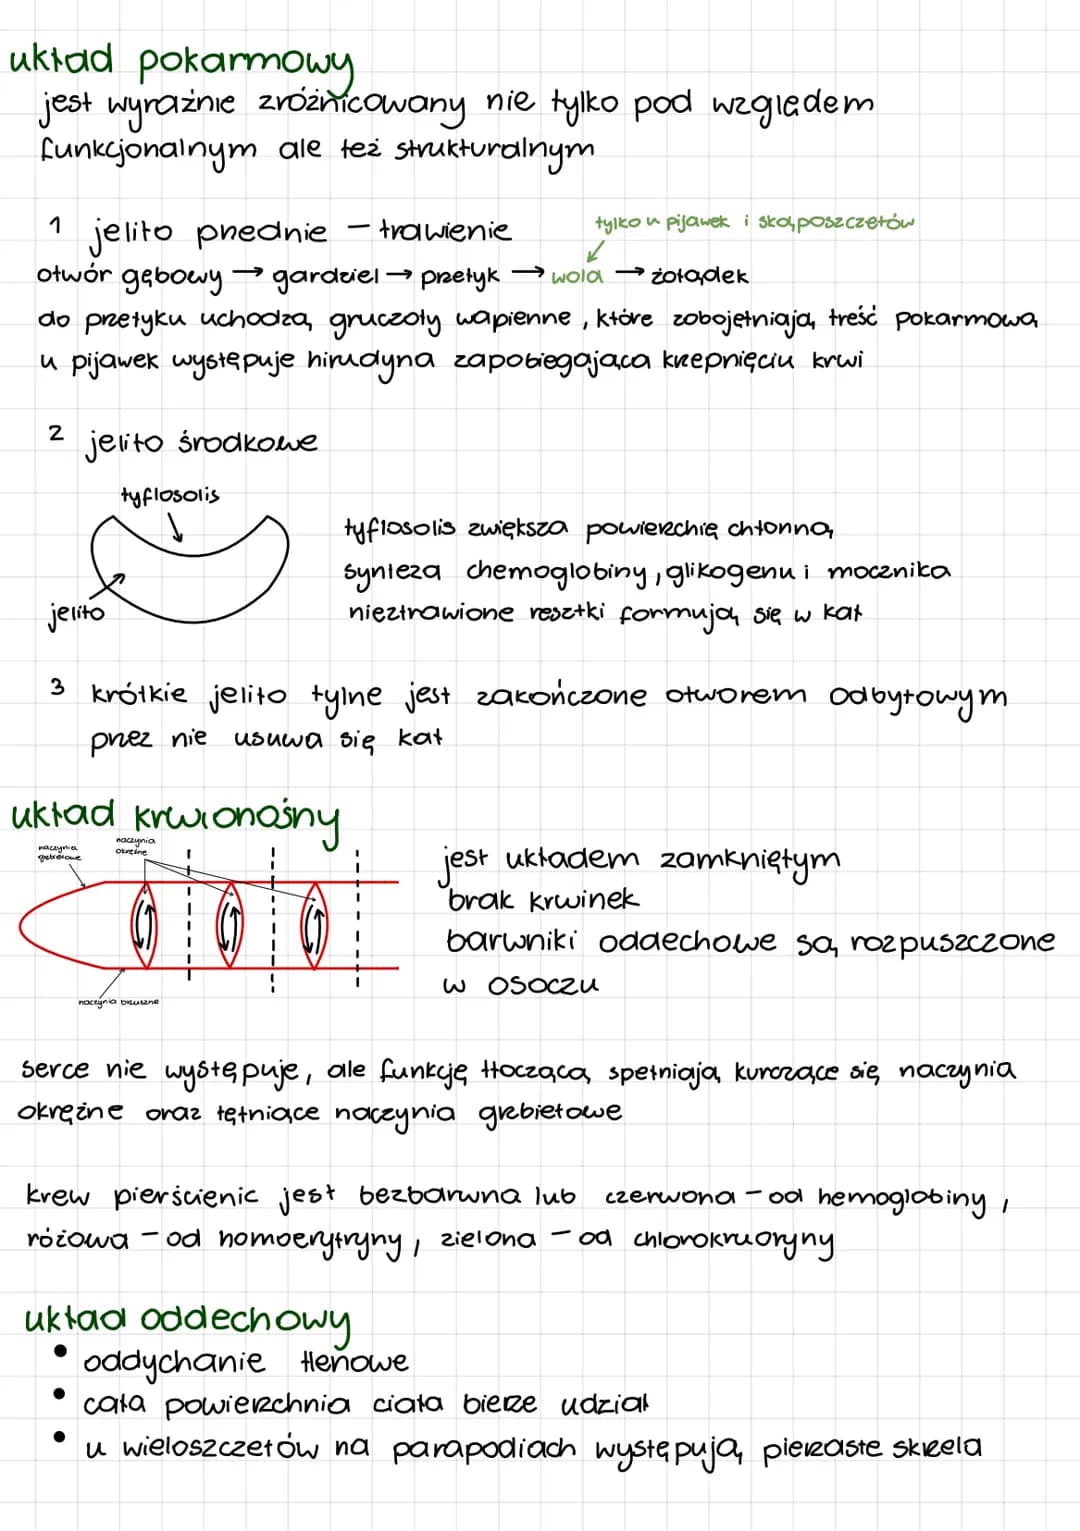 układ pokarmowy
jest wyraźnie zróżnicowany nie tylko pod względem
funkcjonalnym ale też strukturalnym
1 jelito przednie - trawienie
tylko u pijawek i skąposzczetów
otwór gębowy → gardziel → przełyk → wola → żołądek
do przełyku uchodzą gruczoły wapienne, które zobojętniają treść pokarmową
u pijawek występuje hirudyna zapobiegająca krzepnięciu krwi
2 jelito środkowe
tyflosolis
jelito
tyflosolis zwiększa powierzchię chłonną
synteza chemoglobiny, glikogenu i mocznika
nieztrawione resztki formują się w kał
3 krótkie jelito tylne jest zakończone otworem odbytowym
przez nie usuwa się kał
układ krwionośny
naczynia
grzbietowe
naczynia
okrężne
naczynia brzuszne
jest układem zamkniętym
brak krwinek
barwniki oddechowe są rozpuszczone
w osoczu
serce nie występuje, ale funkcję tłoczącą spełniają kurczące się naczynia
okrężne oraz tętniące naczynia grzbietowe
krew pierścienic jest bezbarwna lub czerwona - od hemoglobiny,
różowa - od homoerytryny, zielona - od chlorokruoryny
układ oddechowy
• oddychanie tlenowe
• cała powierzchnia ciała bierze udział
• u wieloszczetów na parapodiach występują pierzaste skrzela